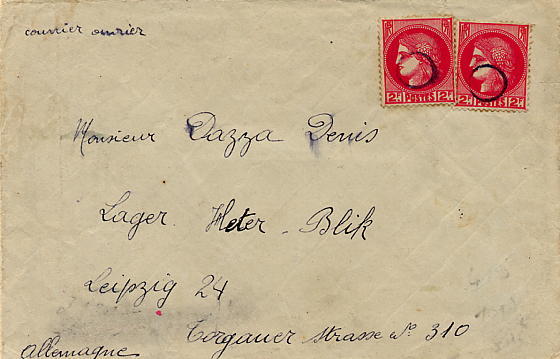 courrier ouvrier
RF RF
2F POSTES 2F 2F POSTES 2F
Monsieur Dazza Denis
Lager Heter-Blik
Leipzig 24
Torgauer Strasse N° 310
Allemagne